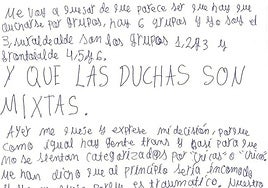 Me voy a quejar de que parece ser que hay que
ducharse por grupos, hay 6 grupos y yo soy el
3, aldealde son los grupos 1, 2 y 3 y
4, 5 y 6.
Y QUE LAS DUCHAS SON
MIXTAS.
Ayer me quejé y exprese mi decisión, porque
como igual hay gente trans y para que
no se sientan categorizados por "chicas" o "chicos"
me han dicho que al principio sería incomodo
es traumático, nuestro